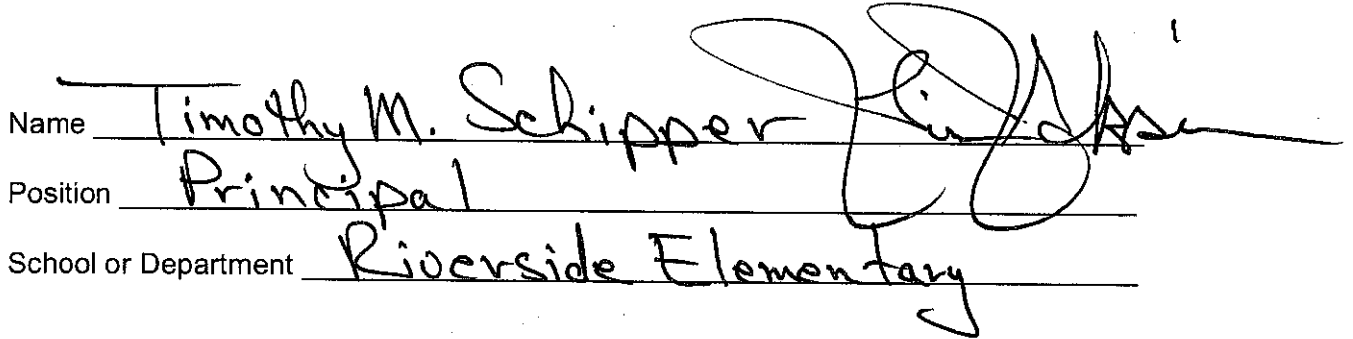 Name Timothy M. Schipper
Position Principal
School or Department Riverside Elementary